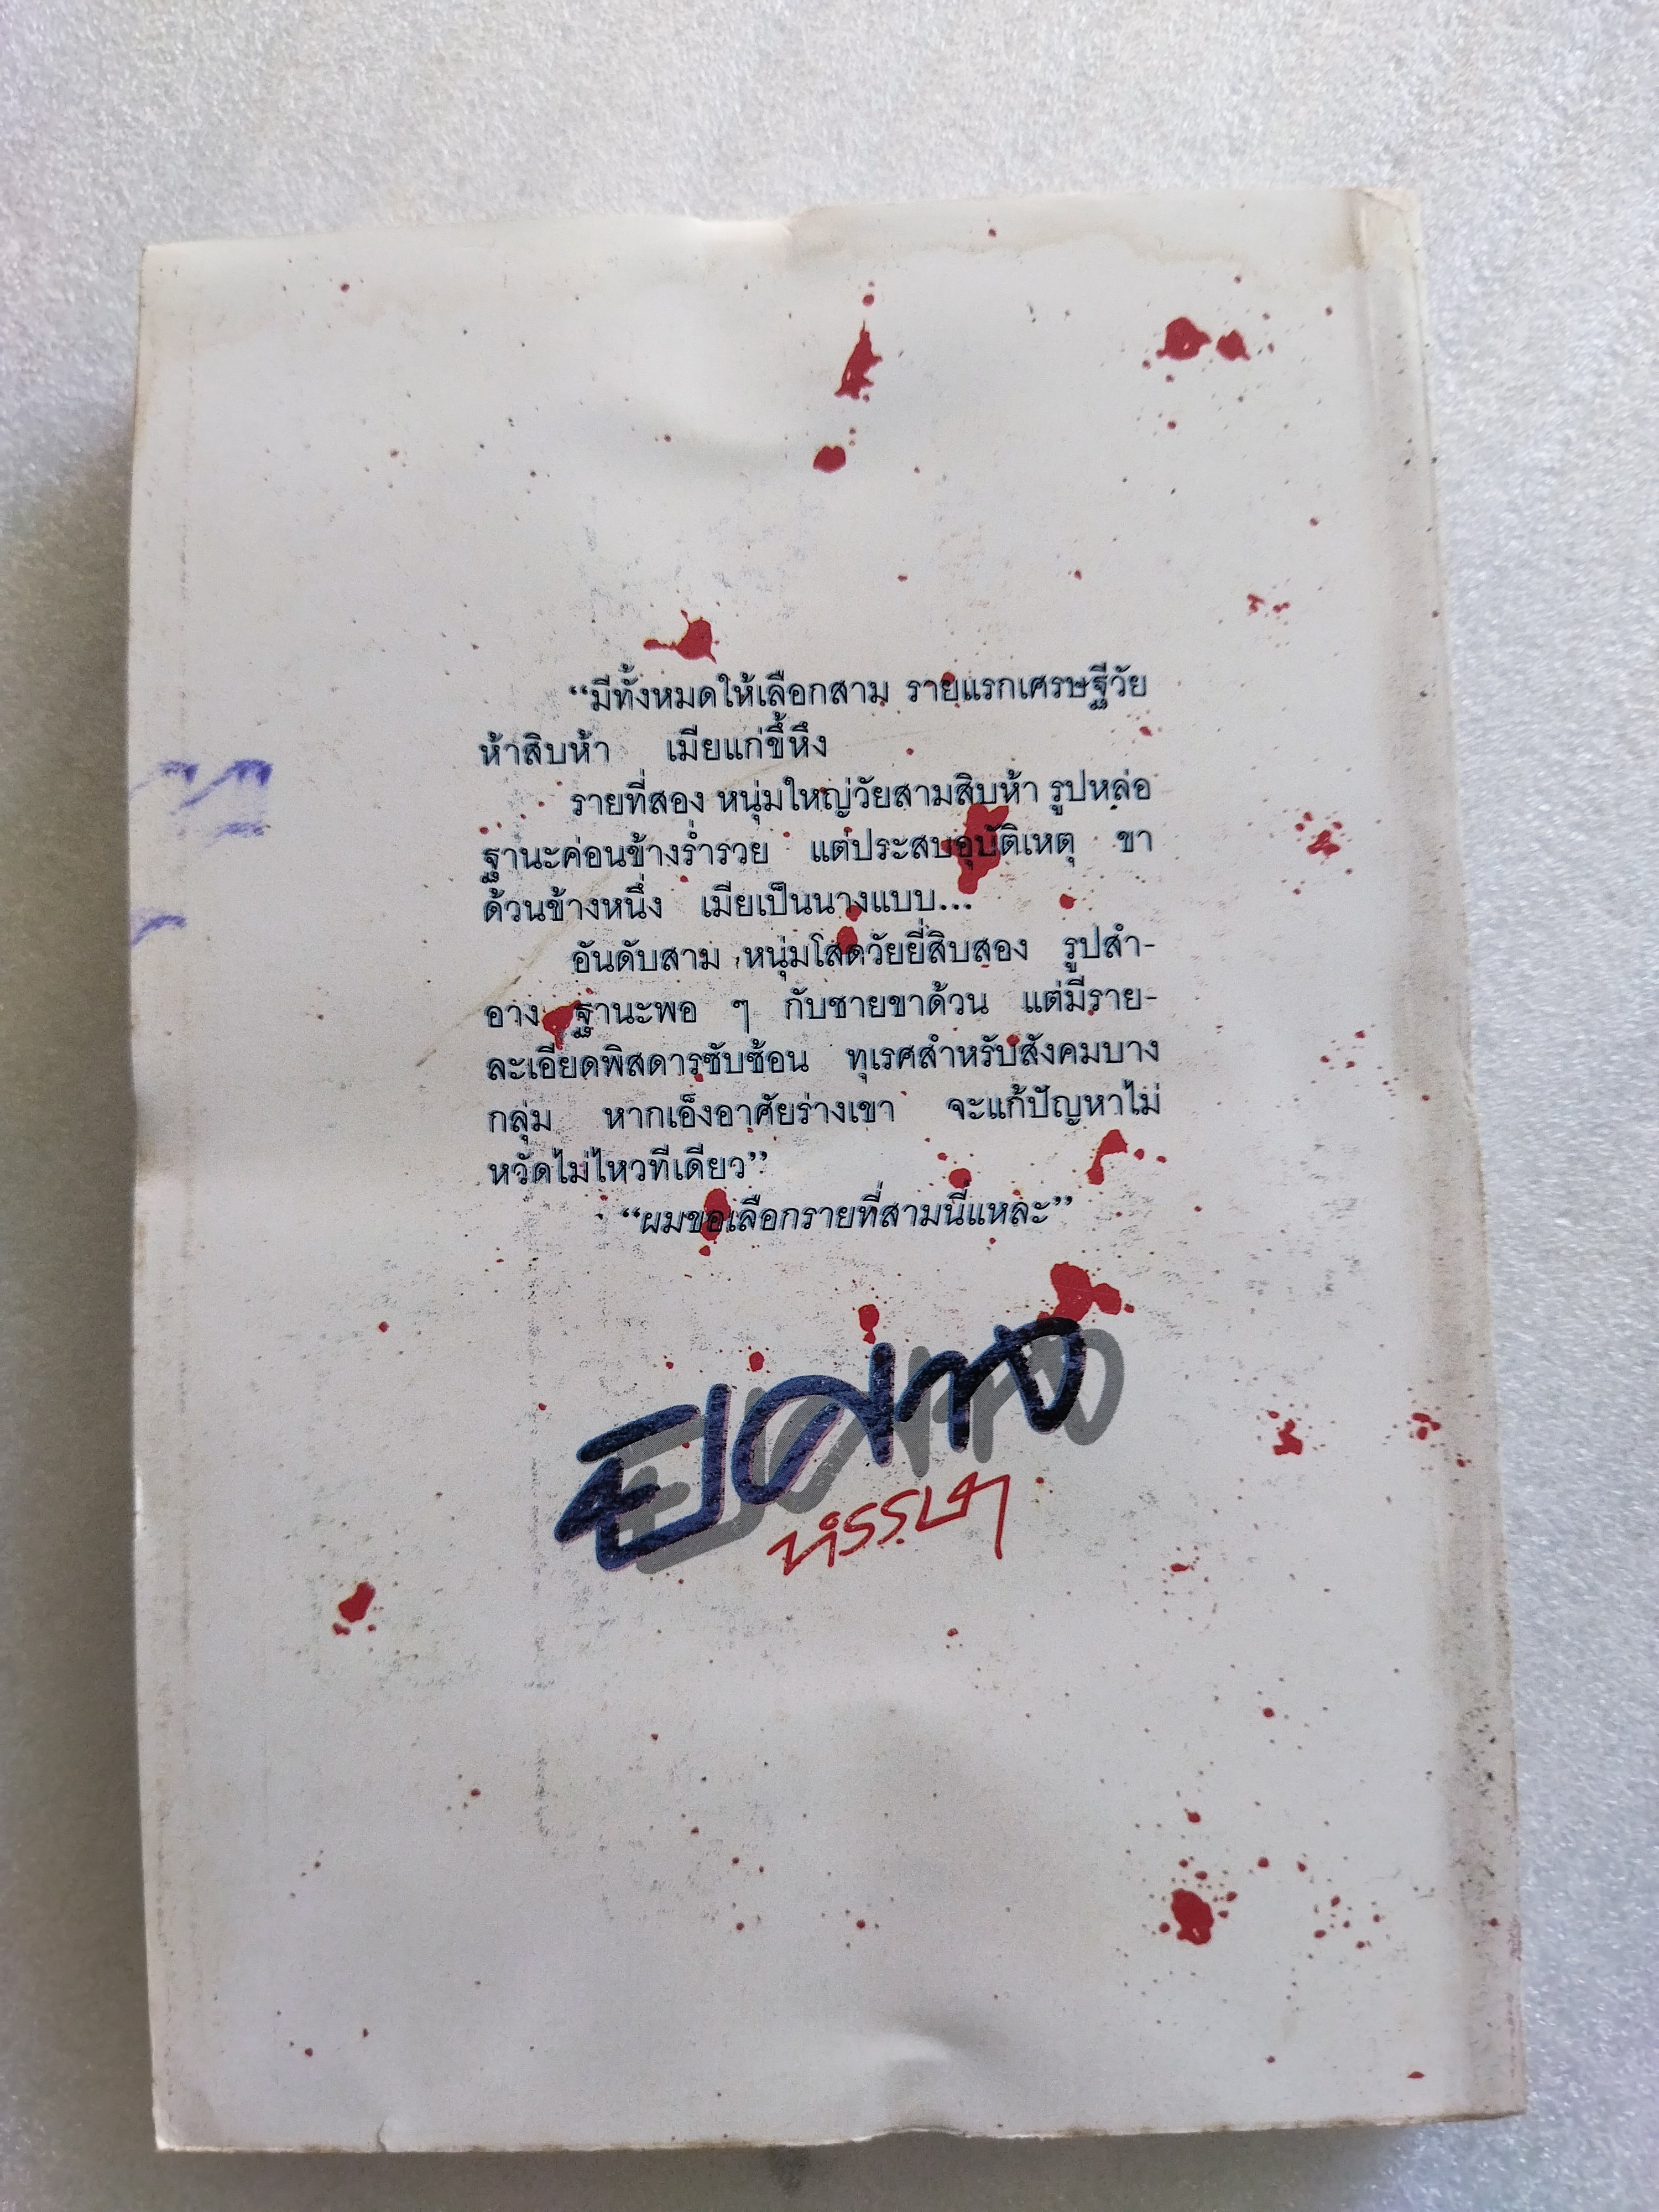 “มีทั้งหมดให้เลือกสาม รายแรกเศรษฐีวัย
ห้าสิบห้า เมียแก่ขี้หึง
รายที่สอง หนุ่มใหญ่วัยสามสิบห้า รูปหล่อ
ฐานะค่อนข้างร่ำรวย แต่ประสบอุบัติเหตุ ขา
ด้วนข้างหนึ่ง เมียเป็นนางแบบ...
อันดับสาม หนุ่มโสดวัยยี่สิบสอง รูปสำ-
อาง ฐานะพอ ๆ กับชายขาด้วน แต่มีราย-
ละเอียดพิสดารซับซ้อน ทุเรศสำหรับสังคมบาง
กลุ่ม หากเอ็งอาศัยร่างเขา จะแก้ปัญหาไม่
หวัดไม่ไหวทีเดียว”
“ผมขอเลือกรายที่สามนี่แหละ”